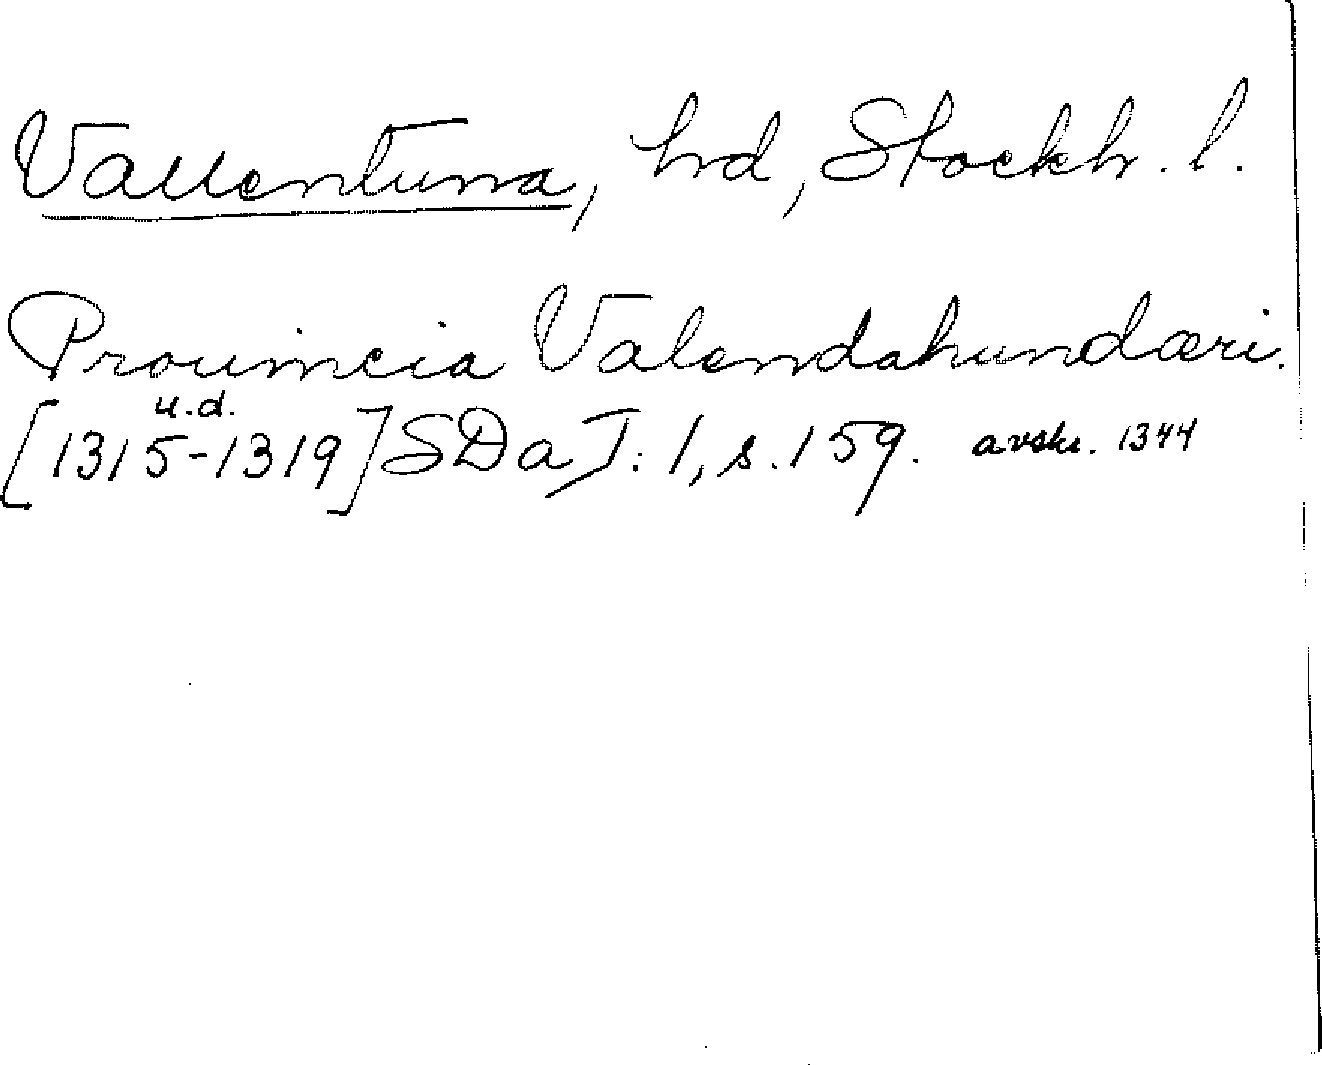 Vallentuna, hd, Stockh. l.
Prouincia Valendahundæri.
u.d.
[1315-1319] SDaI: 1, s. 159. avskr. 1344